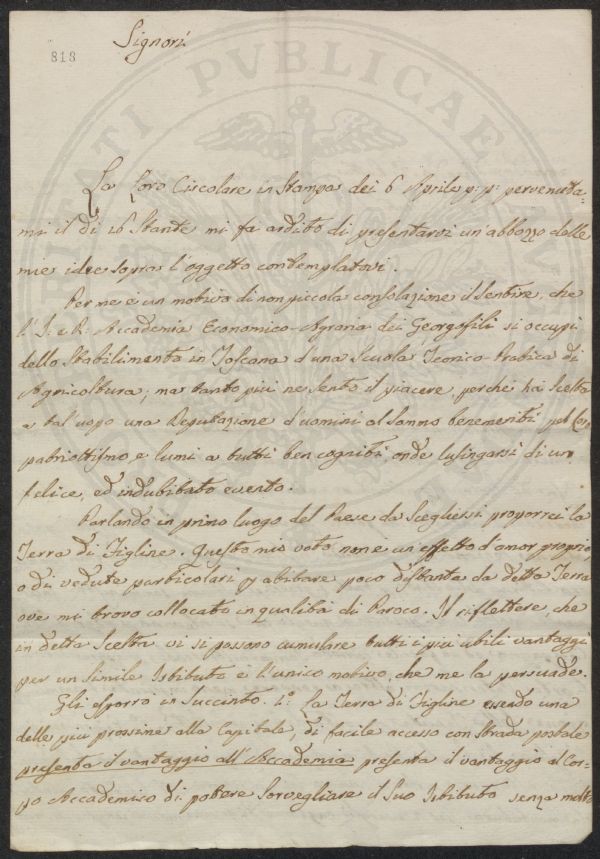 Signori
818
La Loro Circolare in Stampa dei 6 Aprile p: p: pervenuta=
mi il dì 16 Stante mi fa ardito di presentarvi un'abbozzo delle
mie idee sopra l'oggetto contemplatovi.
Per me è un motivo di non piccola consolazione il sentire, che
l'I. e R. Accademia Economico-Agraria dei Georgofili si occupi
dello Stabilimento in Toscana d'una Scuola Teorico-Pratica di
Agricoltura; ma tanto più ne sento il piacere, perché ha scelta
a tal'uopo una Deputazione d'uomini al sommo benemeriti pel Com
patriottismo, e lumi a tutti ben cogniti, onde lusingarsi di un
felice, ed indubitato evento.
Parlando in primo luogo del Paese da Scegliersi proporrei la
Terra di Figline. Questo mio voto non è un'effetto d'amor proprio
o di vedute particolari p abitare poco distante da detta Terra
ove mi trovo collocato in qualità di Paroco. Il riflettere, che
in detta Scelta vi si possono cumulare tutti i più utili vantaggi
per un simile Istituto è l'unico motivo, che me la persuade.
Gli esporrò in Succinto. 1.º La Terra di Figline essendo una
delle più prossime alla Capitale, di facile accesso con Strada postale
presenta il vantaggio all'Accademia presenta il vantaggio al Cor=
po Accademico di potere Sorvegliare il Suo Istituto senza molto
PUBLICAE